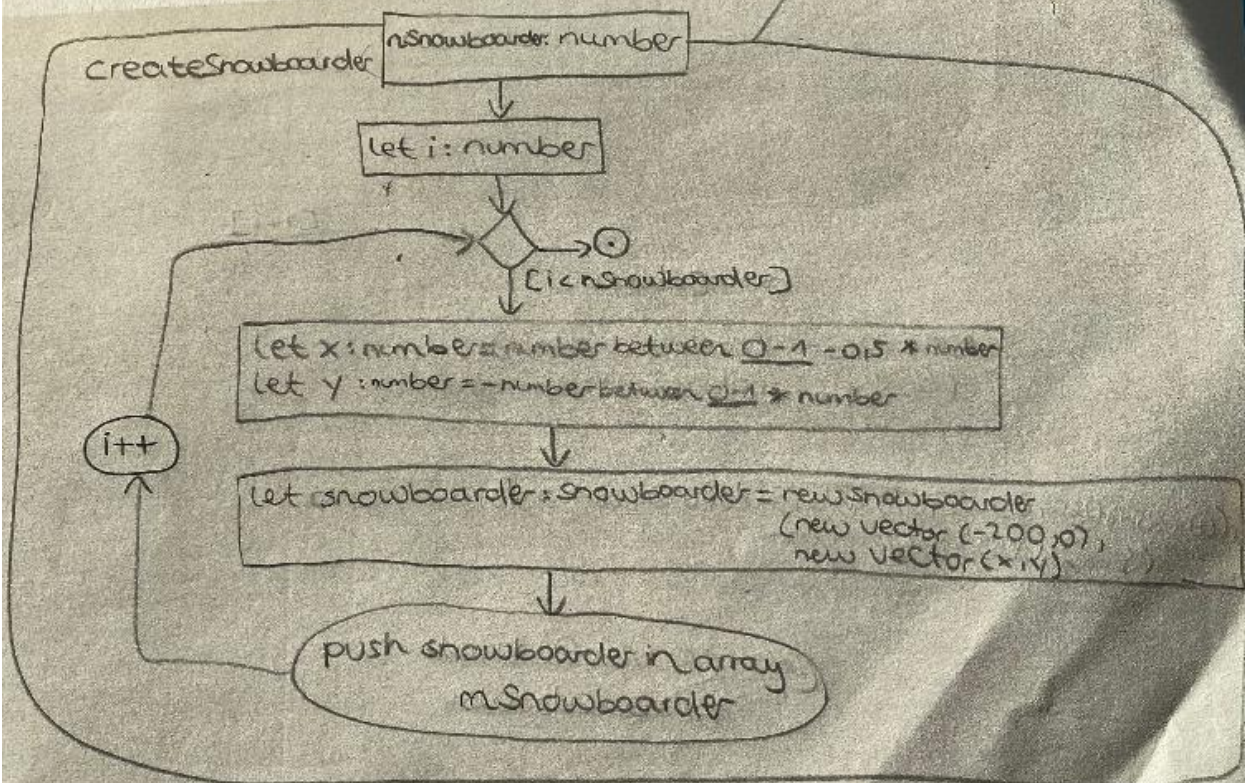 nSnowboarder: number
createSnowboarder
let i: number
[i<nSnowboarder]
let x: number = number between 0-1 - 0,5 * number
let y: number = -number between 0-1 * number
i++
let snowboarder: snowboarder = new snowboarder
(new vector (-200,0),
new vector (x,y)
push snowboarder in array
mSnowboarder